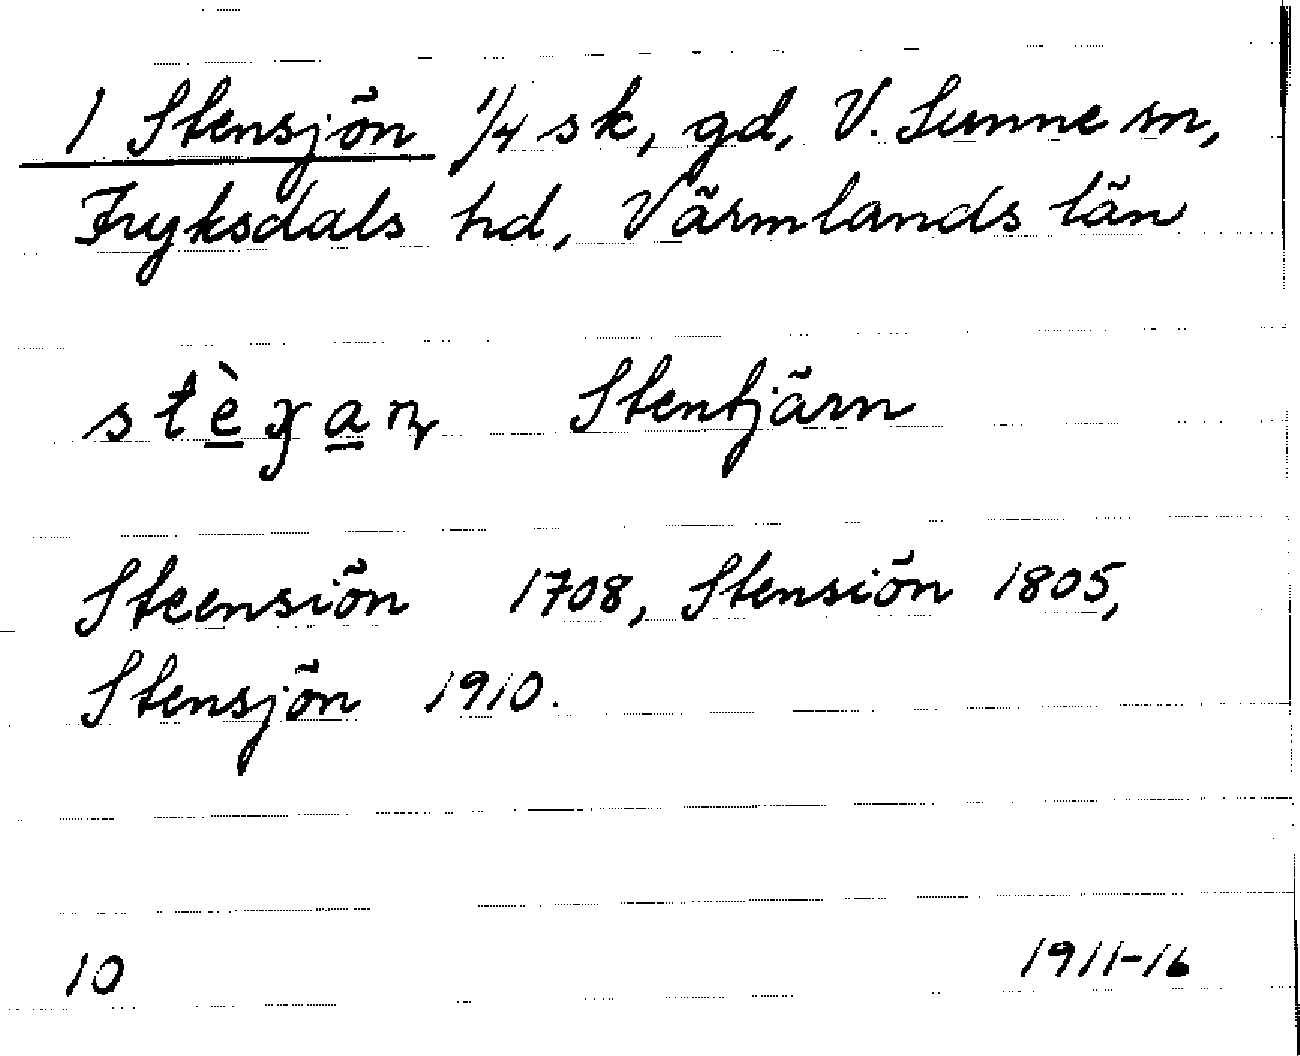 1 Stensjön 1/4 sk, gd, V. Sunne sn,
Fryksdals hd, Värmlands län
Stentjärn
Steensiön 1708, Stensiön 1805,
Stensjön 1910.
10 1911-16